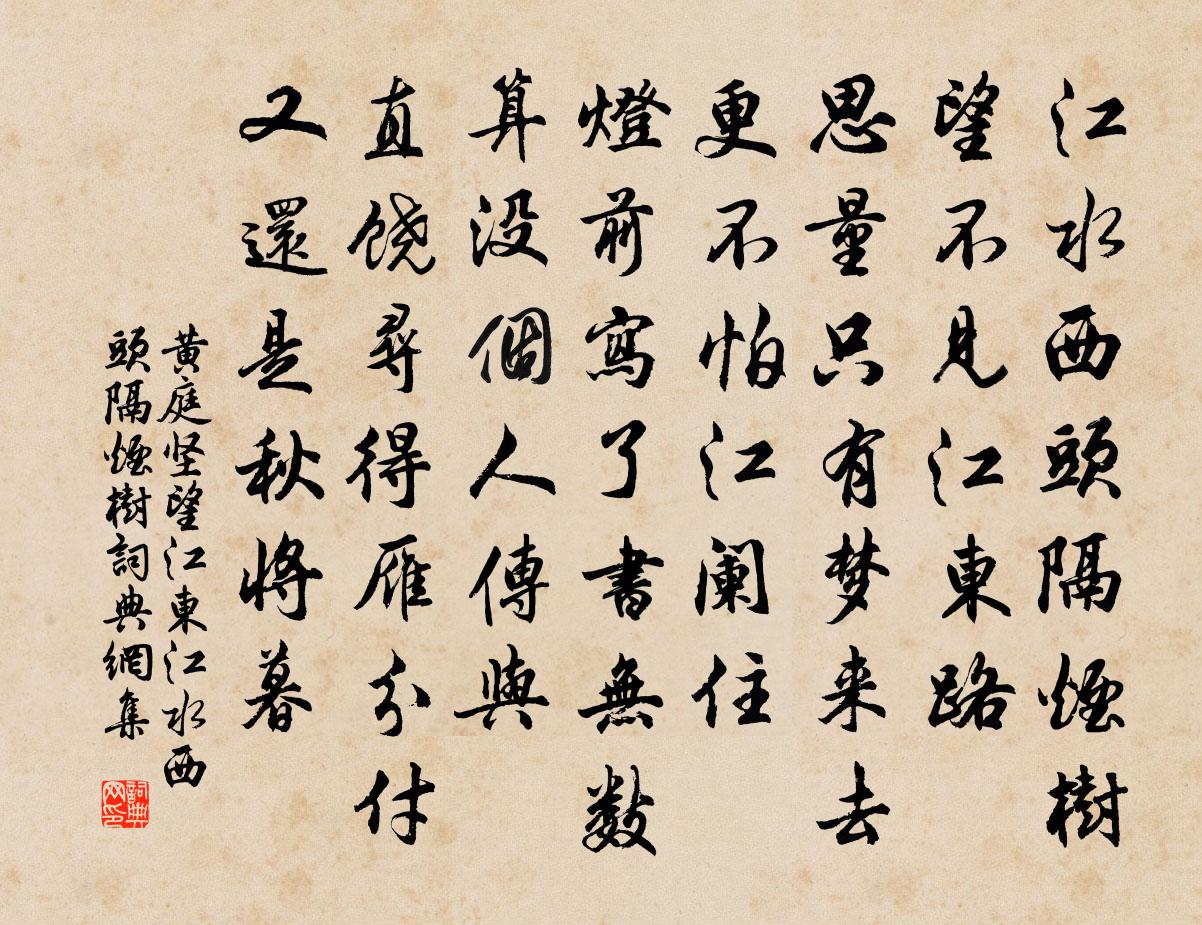 江水西頭隔煙樹
望不見江東路
思量只有梦来去
更不怕江阑住
燈前寫了書無数
算没個人傳與
直饶尋得雁分付
又還是秋將暮
黄庭坚望江東江水西
頭隔煙樹詞典網集
詞典网印